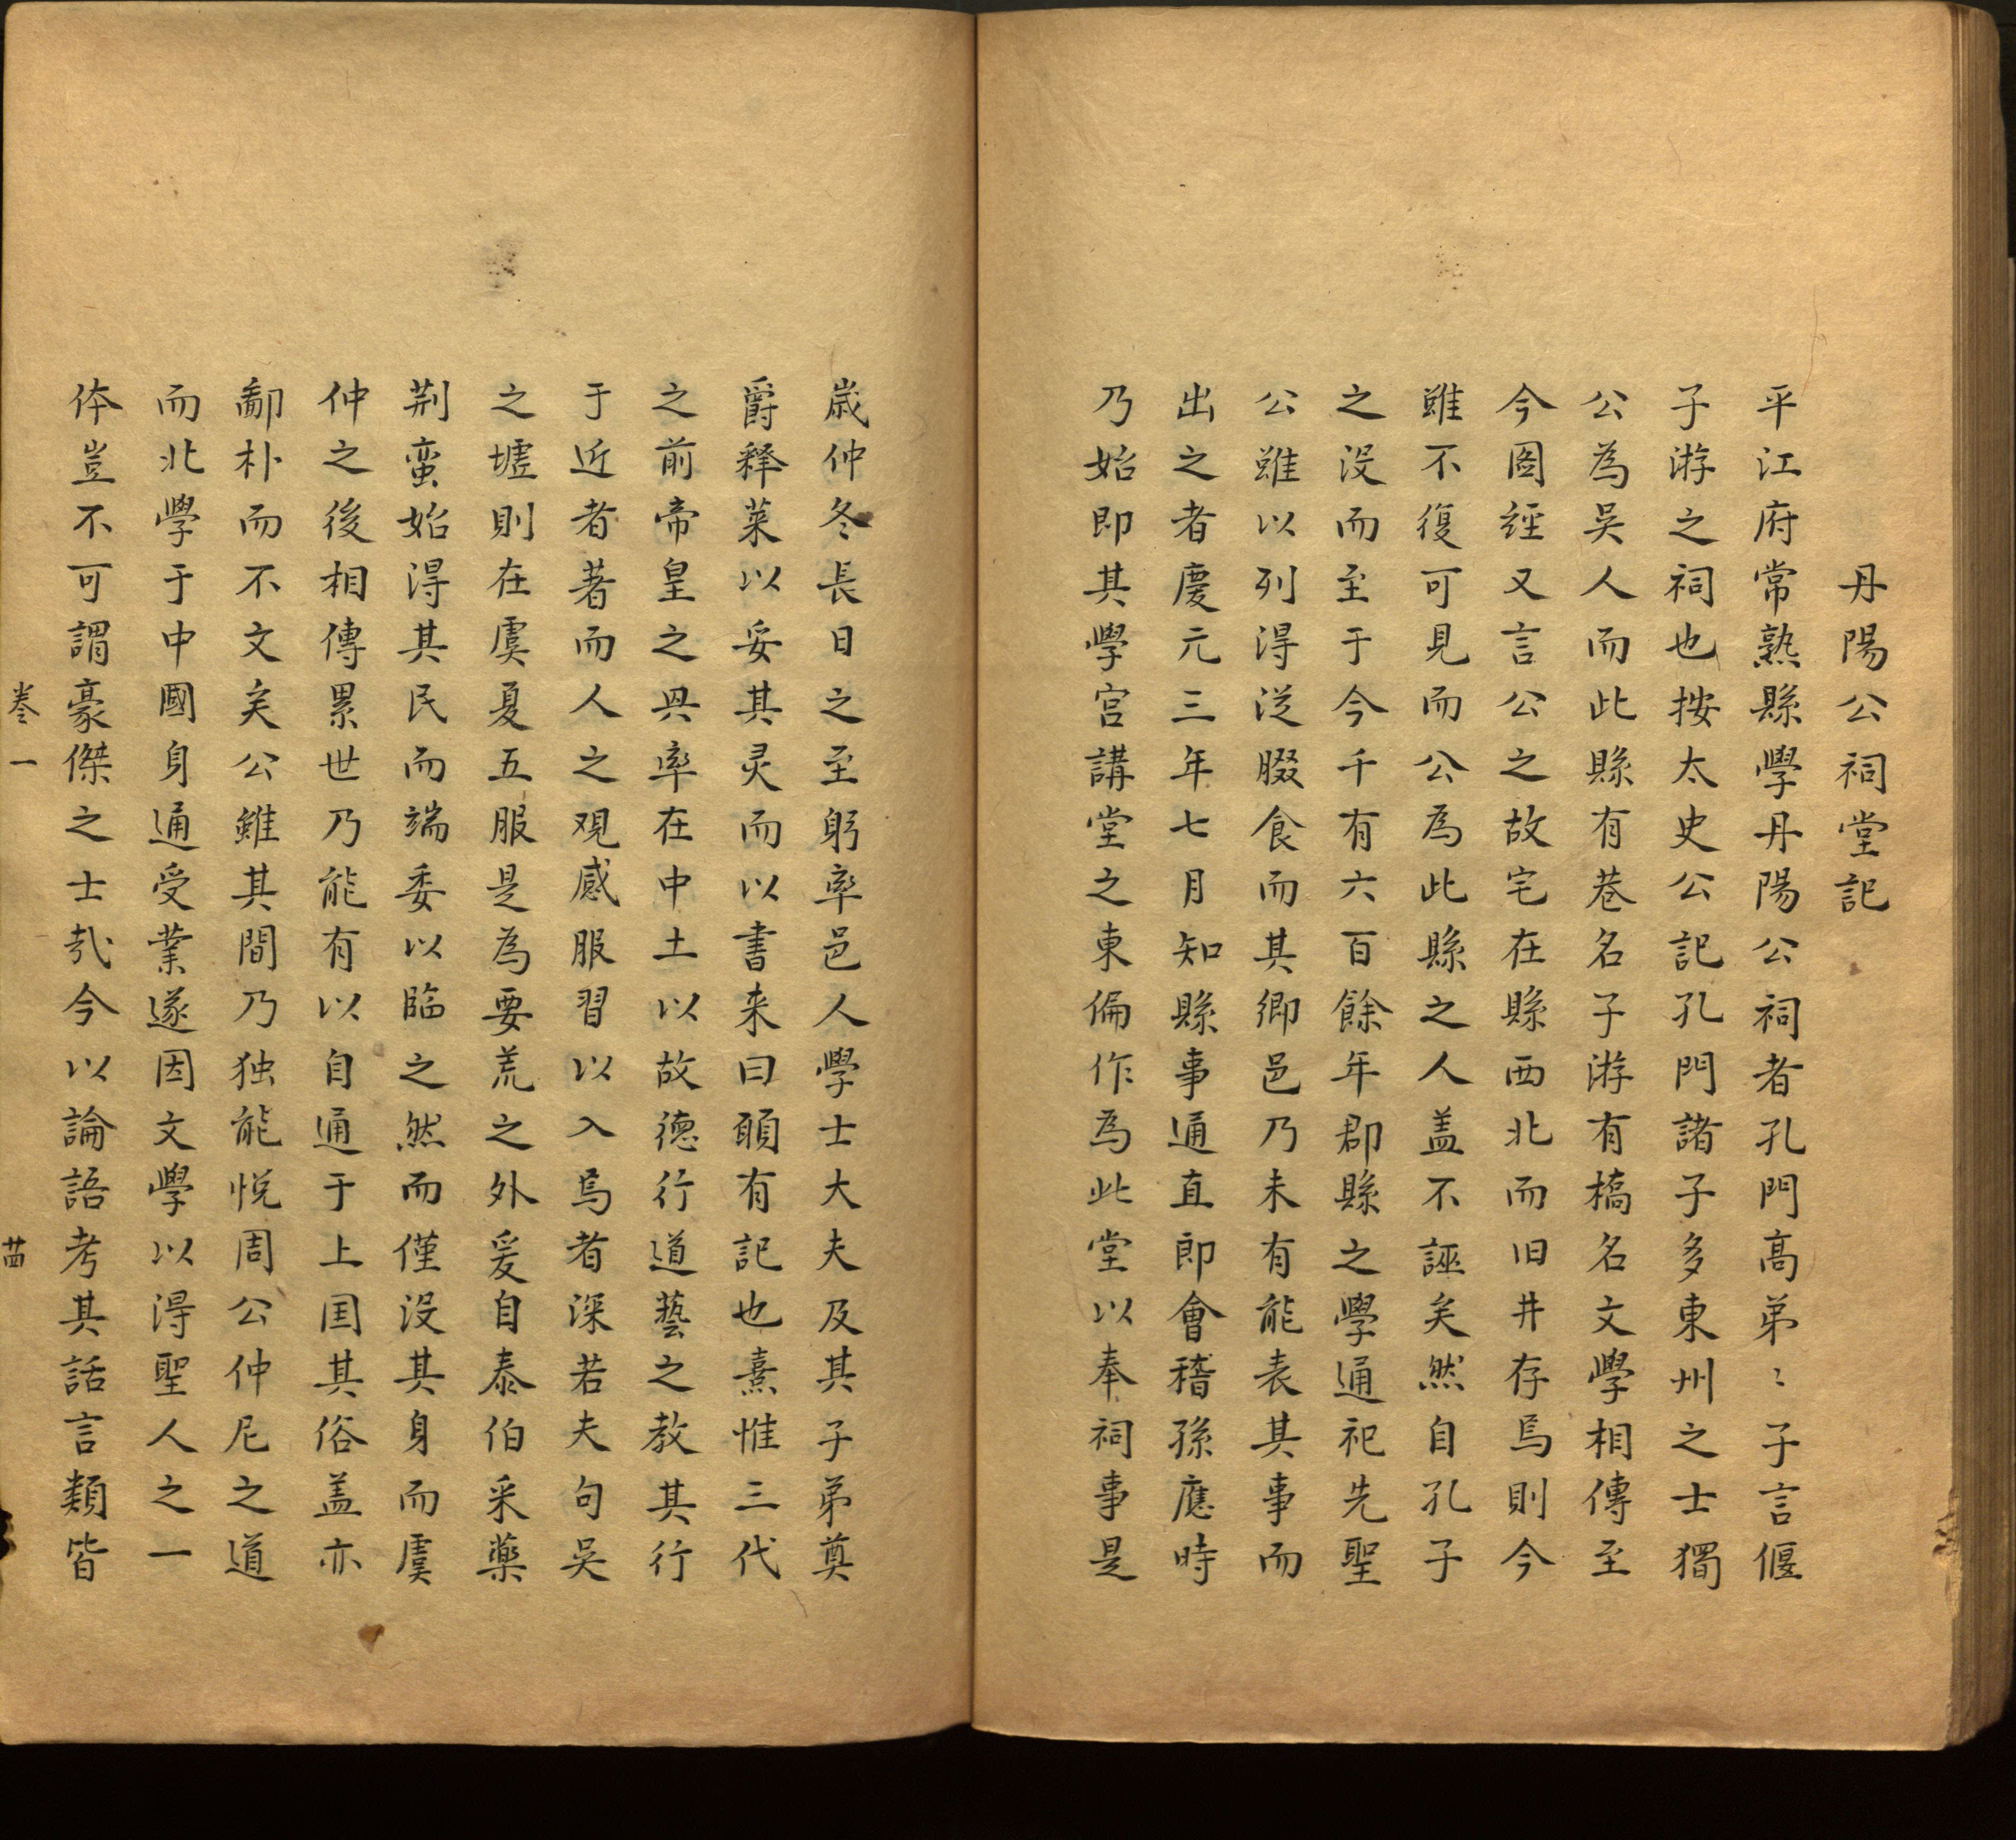 丹陽公祠堂記
平江府常熟縣學丹陽公祠者孔門高弟〻子言偃
子游之祠也按太史公記孔門諸子多東州之士獨
公為吳人而此縣有巷名子游有橋名文學相傳至
今圖経又言公之故宅在縣西北而旧井存焉則今
雖不復可見而公為此縣之人盖不誣矣然自孔子
之没而至于今千有六百餘年郡縣之學通祀先聖
公雖以列得従腏食而其鄉邑乃未有能表其事而
出之者慶元三年七月知縣事通直郎會稽孫應時
乃始即其學宫講堂之東偏作為此堂以奉祠事是
歳仲冬長日之至躬率邑人學士大夫及其子弟奠
爵釋菜以妥其灵而以書来曰頋有記也熹惟三代
之前帝皇之興率在中土以故德行道藝之教其行
于近者著而人之观感服習以入焉者深若夫句吳
之墟則在虞夏五服是為要荒之外爰自泰伯采藥
荆蛮始得其民而端委以臨之然而僅没其身而虞
仲之後相傳累世乃能有以自通于上囯其俗盖亦
鄙朴而不文矣公雖其間乃独能悦周公仲尼之道
而北學于中國身通受業遂因文學以得聖人之一
体豈不可謂豪傑之士㢤今以論語考其話言類皆
卷一
廿四